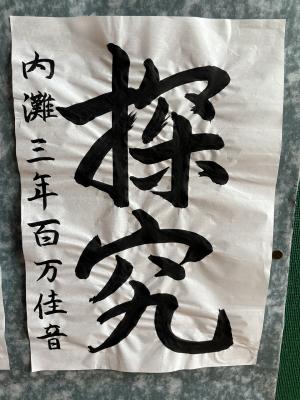 探究
内灘三年百万佳音